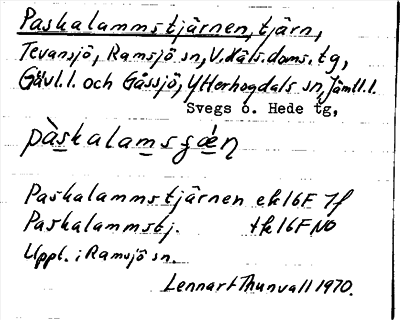 Paskalammstjärnen, tjärn,
Tevansjö, Ramsjö sn, V. Häls. doms. tg,
Gävl. l. och Gåssjö, Ytterhogdals sn, Jämtl. l.
Svegs o. Hede tg,
pàskalamsgæ̀n
Paskalammstjärnen ek 16F 7f
Paskalammstj. tk 16F NO
Uppt. i Ramsjö sn.
Lennart Thunvall 1970.